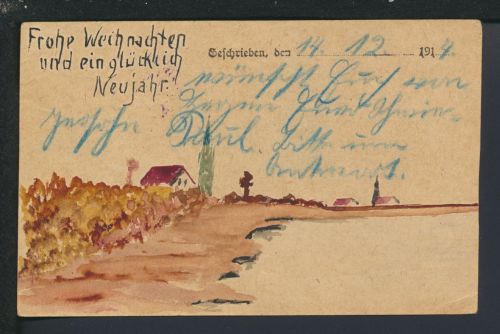 Frohe Weihnachten
und ein glücklich
Neujahr.
Geschrieben, den 14. 12. 1914.
wünscht Euch von
Euer Schwie-
gersohn Paul. Bitte um
Antwort.